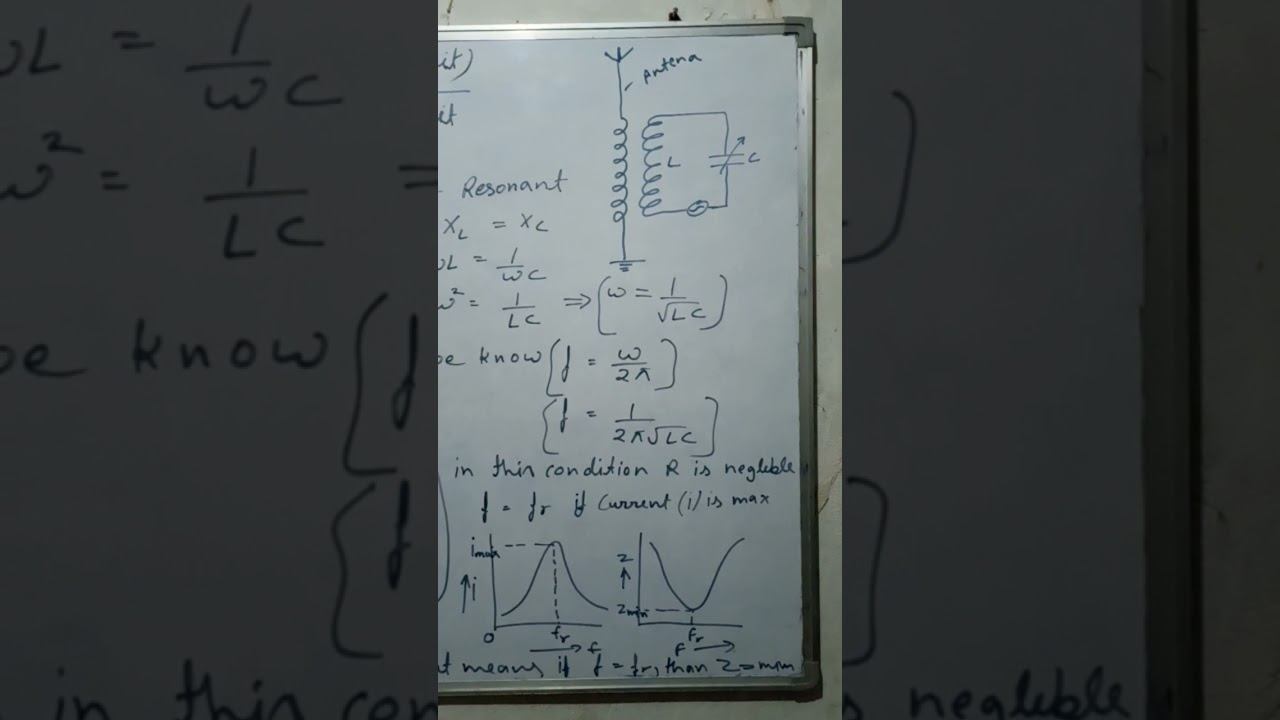 it)
Antena
it
L
C
Resonant
X_L = X_C
ωL = 1/ωC
ω² = 1/LC ⇒ (ω = 1/√LC)
be know (f = ω/2π)
(f = 1/2π√LC)
in this condition R is neglible
f = fr if Current (i) is max
imax
↑ i
0
fr
→ f
Z ↑
Zmin
fr
f →
t means if f = fr, than Z = mim